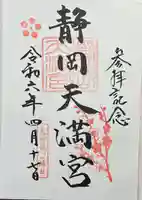 参拝記念
静岡天満宮
令和六年四月十七日